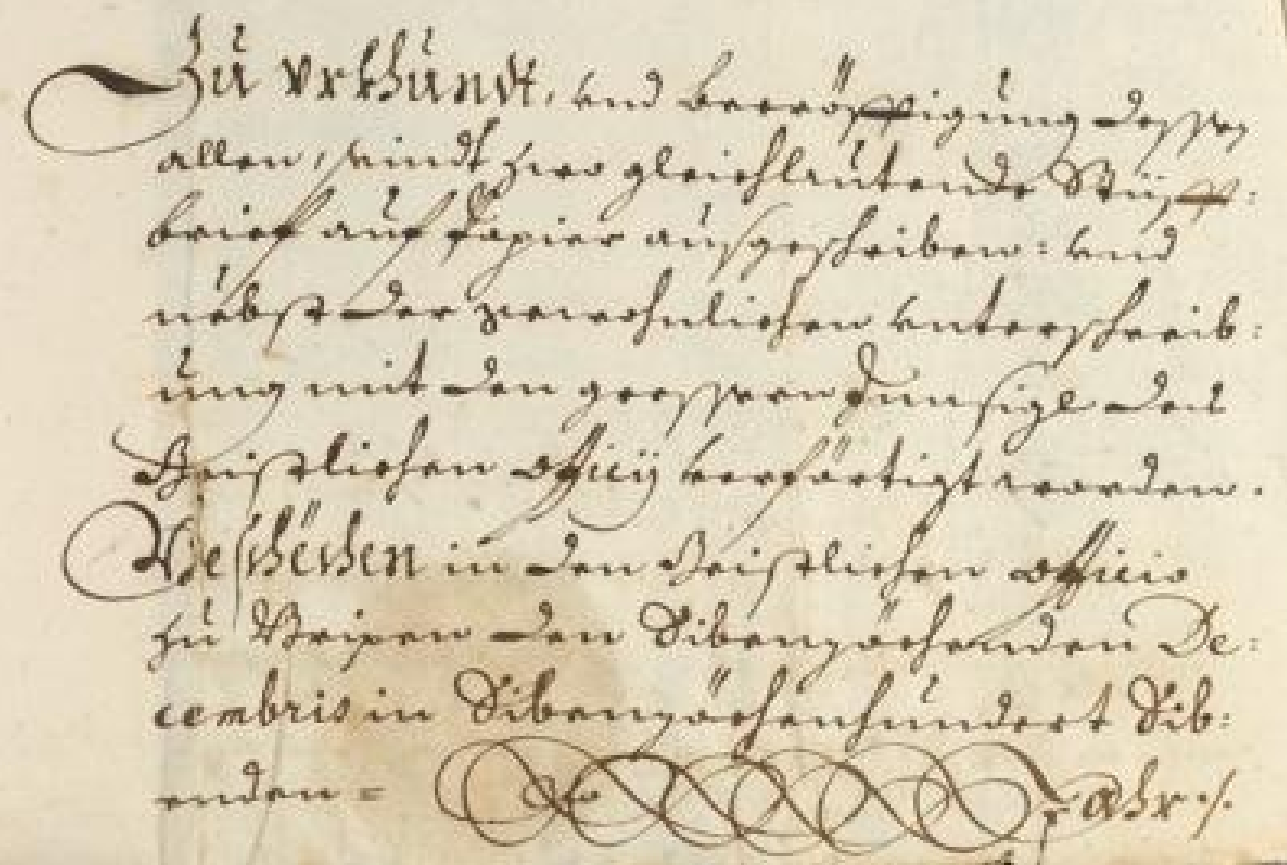 Zu Vrkhundt, vnd becröfftigung dessen
allen, seindt zwo gleichlautende Stüfft:
brief auf Papier außgeschriben: vnd
nebst der gewohnlichen vnterschreib:
ung mit den grossern Innsigl des
Geistlichen Officij verförtigt worden.
Geschechen in den Geistlichen Officio
zu Brixen den Sibenzöchenden De:
cembris in Sibenzöchenhundert Sib:
enden= Jahr ./.